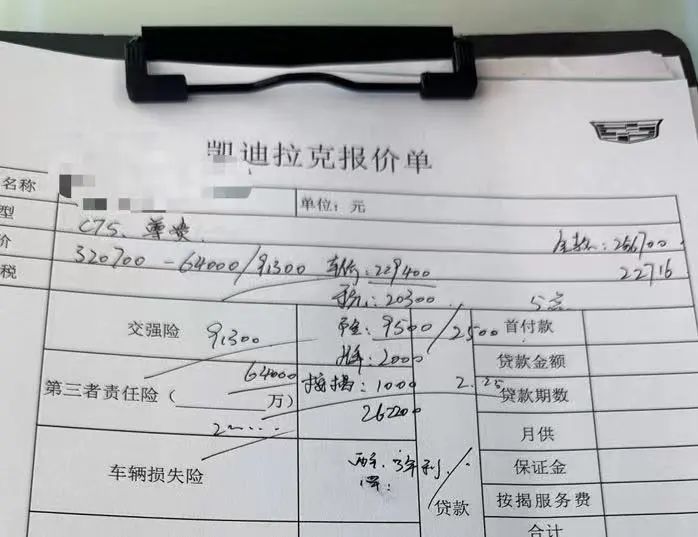 凯迪拉克报价单
名称
单位：元
型
CT5
价
320700 - 64000/91300 车价：229400
全款：256700
税
22716
税：20300
交强险
91300
9500/2500
首付款
牌：2000
贷款金额
64000
第三者责任险（
万）
按揭：1000
2.25
贷款期数
262200
月供
车辆损失险
保证金
贷款
按揭服务费
合计